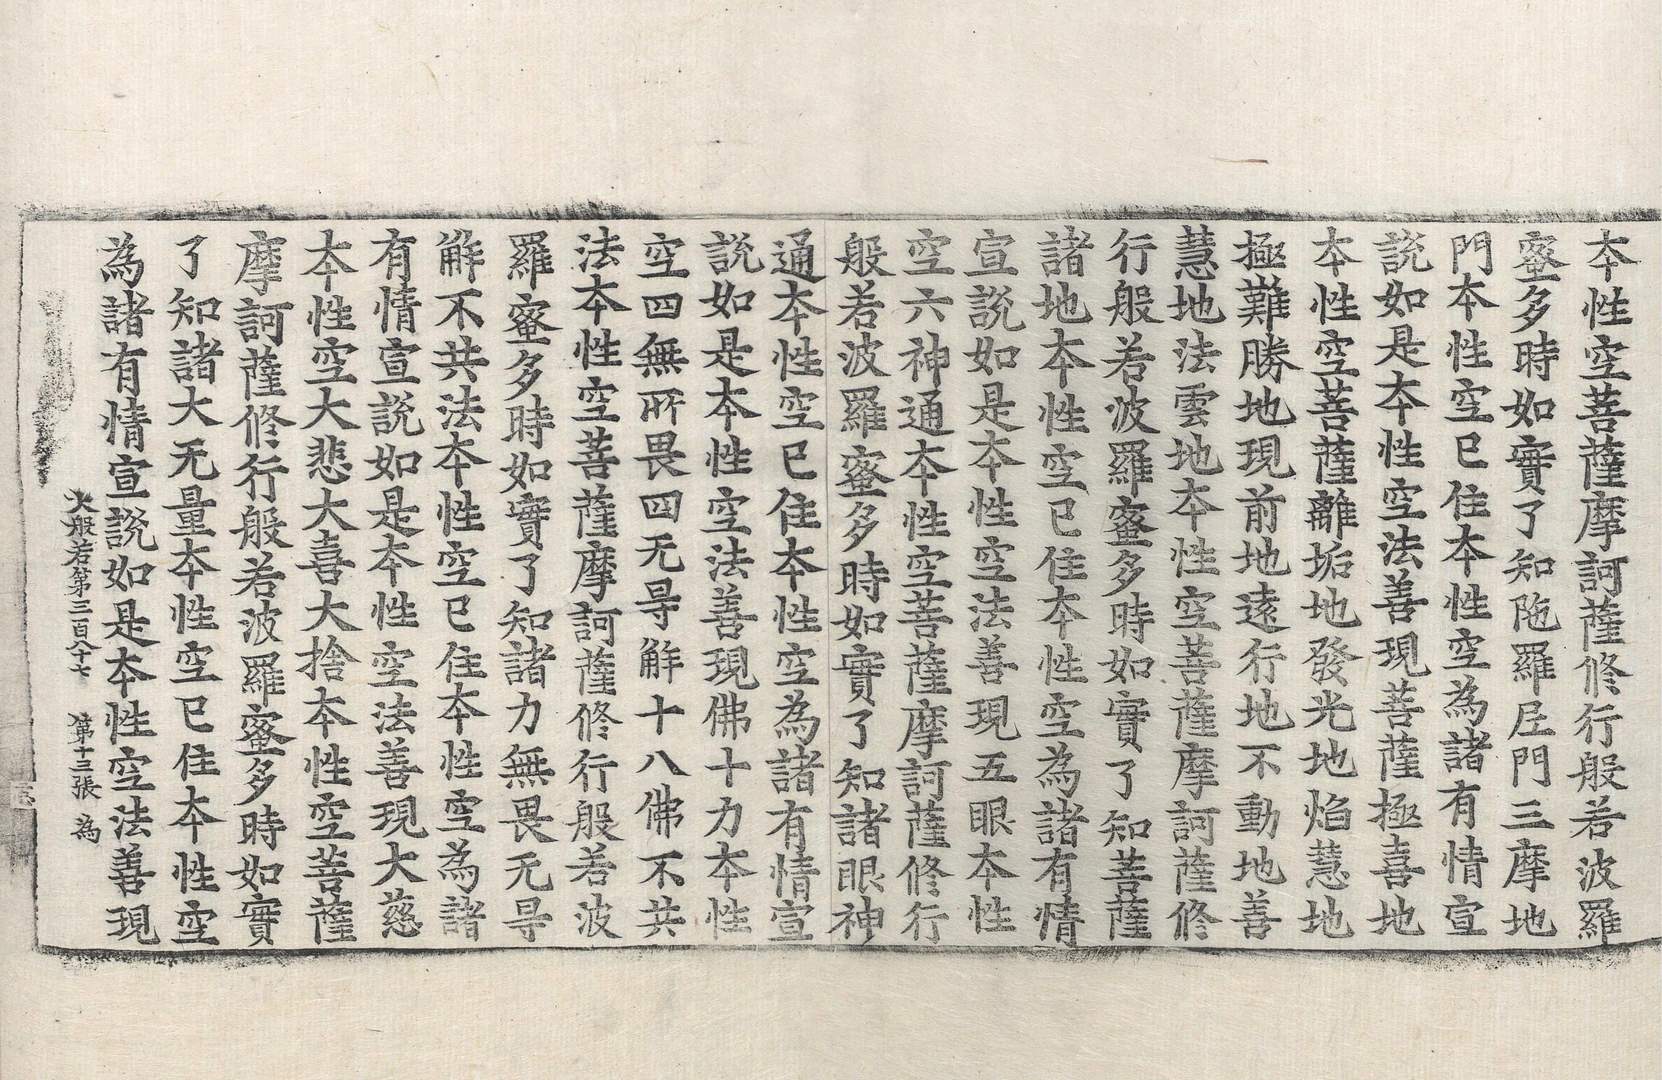 本性空菩薩摩訶薩修行般若波羅
蜜多時如實了知陁羅尼門三摩地
門本性空已住本性空為諸有情宣
說如是本性空法善現菩薩極喜地
本性空菩薩離垢地發光地焰慧地
極難勝地現前地遠行地不動地善
慧地法雲地本性空菩薩摩訶薩修
行般若波羅蜜多時如實了知菩薩
諸地本性空已住本性空為諸有情
宣說如是本性空法善現五眼本性
空六神通本性空菩薩摩訶薩修行
般若波羅蜜多時如實了知諸眼神
通本性空已住本性空為諸有情宣
說如是本性空法善現佛十力本性
空四無所畏四无㝵解十八佛不共
法本性空菩薩摩訶薩修行般若波
羅蜜多時如實了知諸力無畏无㝵
解不共法本性空已住本性空為諸
有情宣說如是本性空法善現大慈
本性空大悲大喜大捨本性空菩薩
摩訶薩修行般若波羅蜜多時如實
了知諸大无量本性空已住本性空
為諸有情宣說如是本性空法善現
大般若第三百八十七 第十三張 為